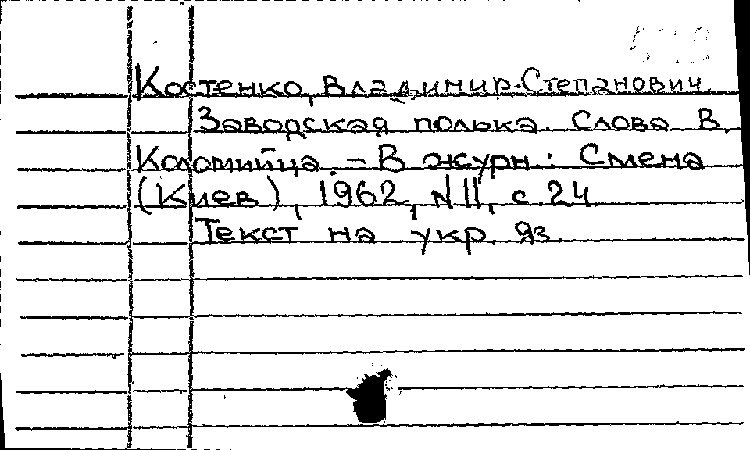 Костенко, Владимир Степанович.
Заводская полька. Слова В.
Коломийца. – В журн.: Смена
(Киев), 1962, № 11, с. 24
Текст на укр. яз.